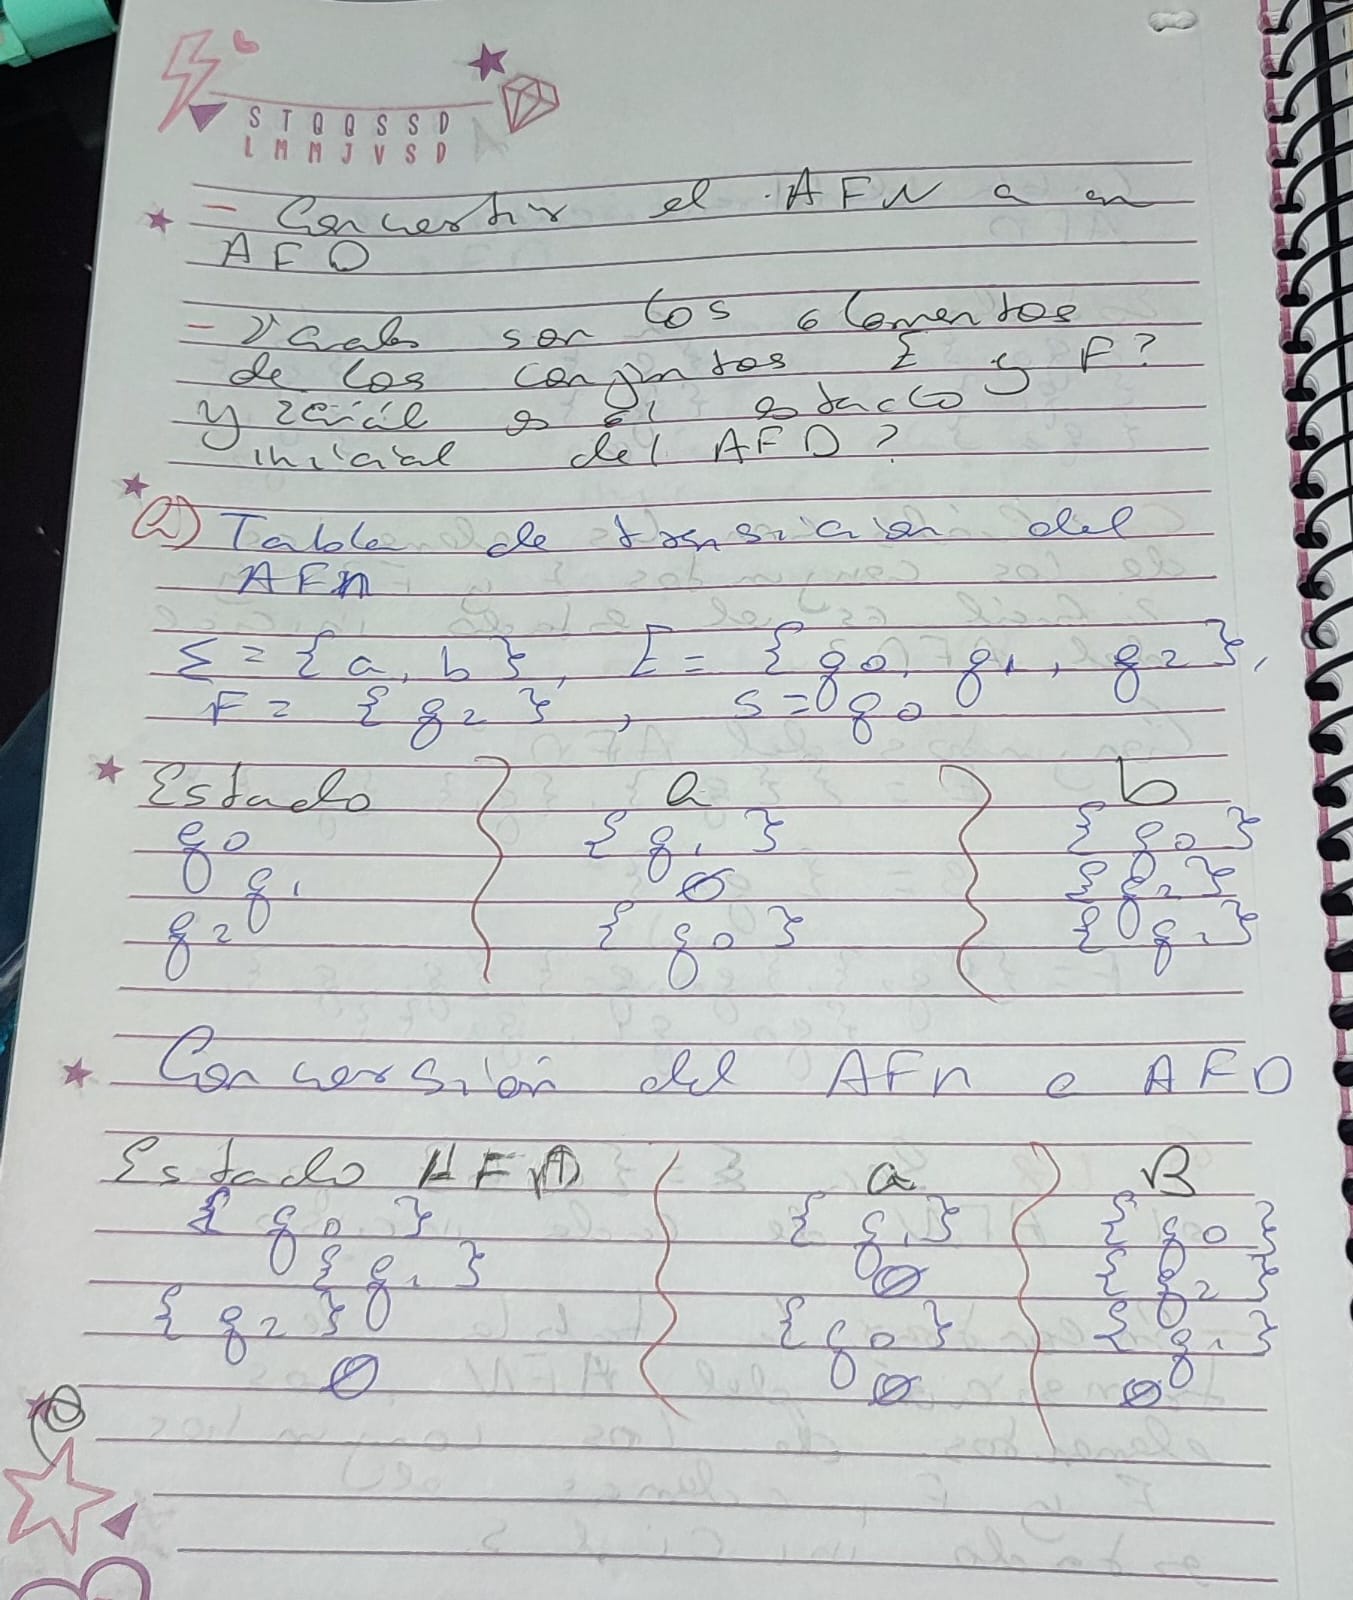 S T Q Q S S D
L M M J V S D
- Convertir el AFN a un
AFD
- ¿Cuales son los elementos
de los conjuntos E y F?
y ¿cuál es el estado
inicial del AFD?
a) Tabla de transición del
AFn
Σ = {a, b}, E = {q0, q1, q2},
F = {q2}, s = q0
Estado a b
q0 {q1} {q0}
q1 ∅ {q2}
q2 {q0} {q1}
Conversión del AFn a AFD
Estado AFD a B
{q0} {q1} {q0}
{q1} ∅ {q2}
{q2} {q0} {q1}
∅ ∅ ∅